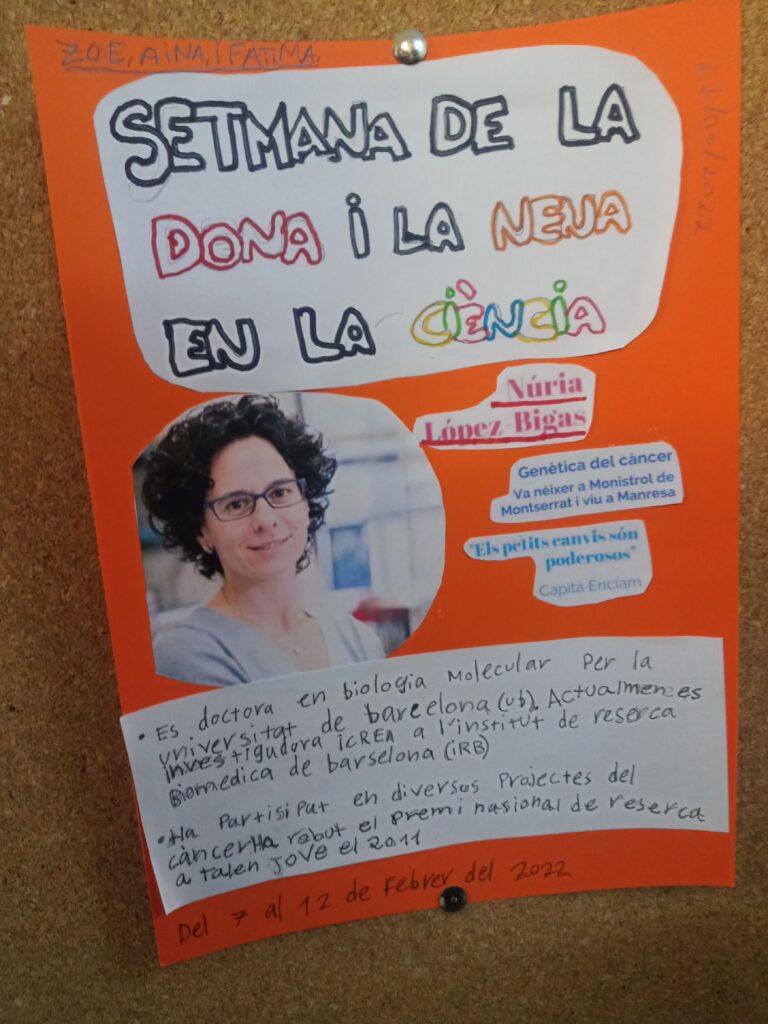 ZOE, AINA, I FATIMA
SETMANA DE LA
DONA I LA NENA
EN LA CIÈNCIA
Núria
López-Bigas
Genètica del càncer
Va néixer a Monistrol de
Montserrat i viu a Manresa
"Els petits canvis són
poderosos"
Capità Enciam
• Es doctora en biologia Molecular Per la
universitat de barcelona (ub). Actualmen es
investigadora iCREA a l'institut de reserca
Biomedica de barselona (iRB)
• Ha Partisipat en diversos Projectes del
càncer Ha rebut el premi nasional de reserca
a talen Jove el 2011
Del 7 al 12 de Febrer del 2022